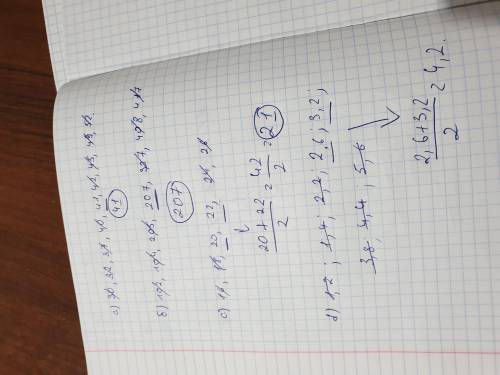 а) 30, 32, 37, 40, 41, 42, 43, 49, 52.
41
б) 193, 194, 205, 207, 307, 408, 417
207
с) 17, 18, 20, 22, 25, 28
20+22/2 = 42/2 = 21
д) 1,2 ; 1,4 ; 2,2 ; 2,6 ; 3,2 ;
3,8 4,4 ; 5,6
2,6+3,2/2 = 4,2.